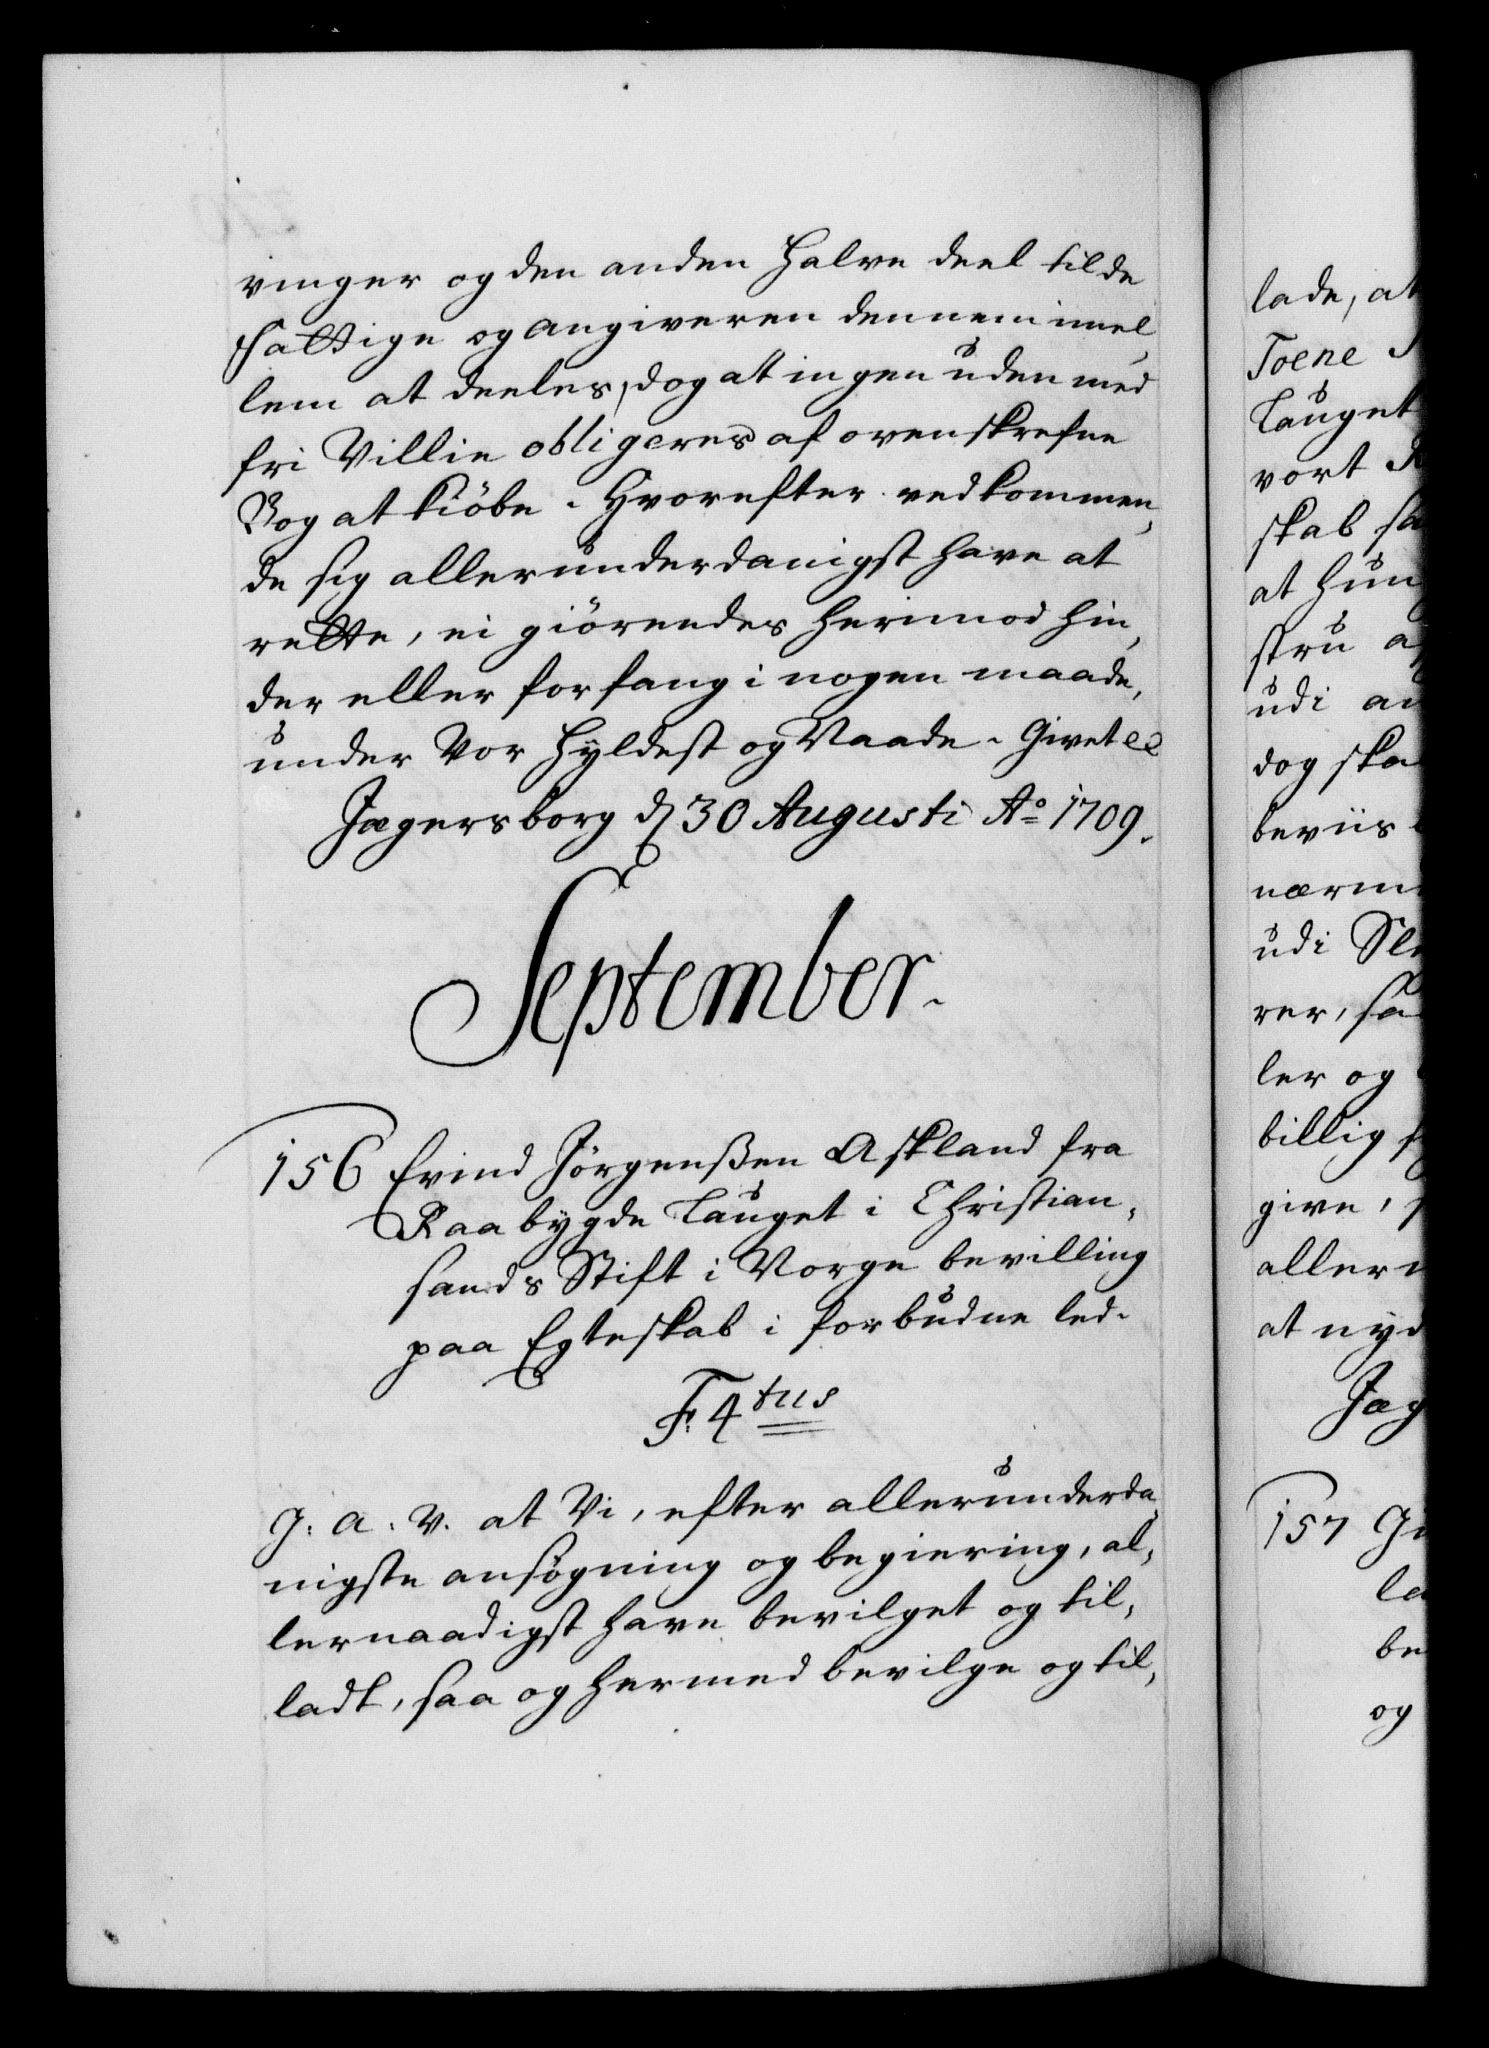 ringer og den anden halve deel til de
fattige og angiveren dennem imel,
lem at deeles, dog att ingen uden med
fri Villie obligeres af ovenskrefne
Bog at kiöbe. Hvorefter vedkommen,
de sig allerunderdanigst have at
rette, ei giörendes herimod hin,
der eller forfang i nogen maade,
under Vor Hyldest og Naade. Givet
Jægersborg d 30 Augusti Ao 1709.
September.
156 Evind Jörgenßen Askland fra
Raabygde Lauget i Christian,
sands Stift i Norge bevilling
paa Egteskab i forbudne led.
F. 4tus
G: A: V. at Vi, efter allerunderda,
nigste ansøgning og begiering, al,
lernaadigst have bevilget og til,
ladt, saa og hermed bevilge og til,
lade, at
Toene
Lauget
vort
skab
at
udi
dog
beviis
udi
ler og
billig
give,
at
157
og